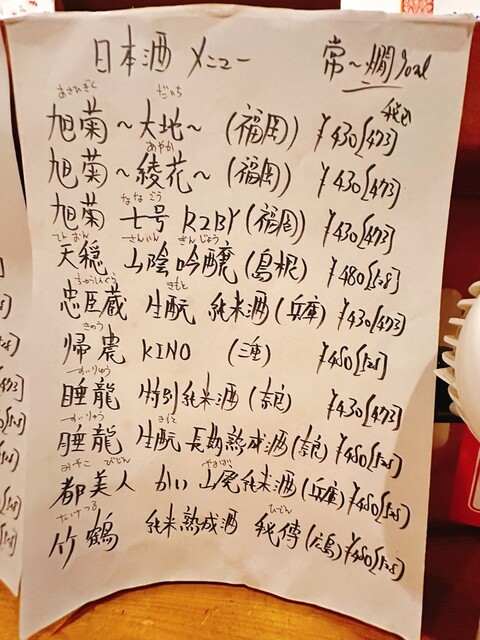 日本酒 メニュー 常～燗 90ml
税込
あさひぎく だいち
旭菊 ～大地～ (福岡) ¥430[473]
あやか
旭菊 ～綾花～ (福岡) ¥430[473]
ななごう
旭菊 七号 R2BY (福岡) ¥430[473]
てんおん さんいん ぎんじょう
天穏 山陰吟醸 (島根) ¥480[528]
ちゅうしんぐら きもと
忠臣蔵 生酛 純米酒 (兵庫) ¥430[473]
きのう
帰農 KINO (三重) ¥480[528]
すいりゅう
睡龍 特別純米酒 (奈良) ¥430[473]
すいりゅう きもと
睡龍 生酛 長期熟成酒 (奈良) ¥480[528]
みやこ びじん やまはい
都美人 山廃純米酒 (兵庫) ¥480[528]
たけつる ひでん
竹鶴 純米熟成酒 秘傳 (広島) ¥480[528]